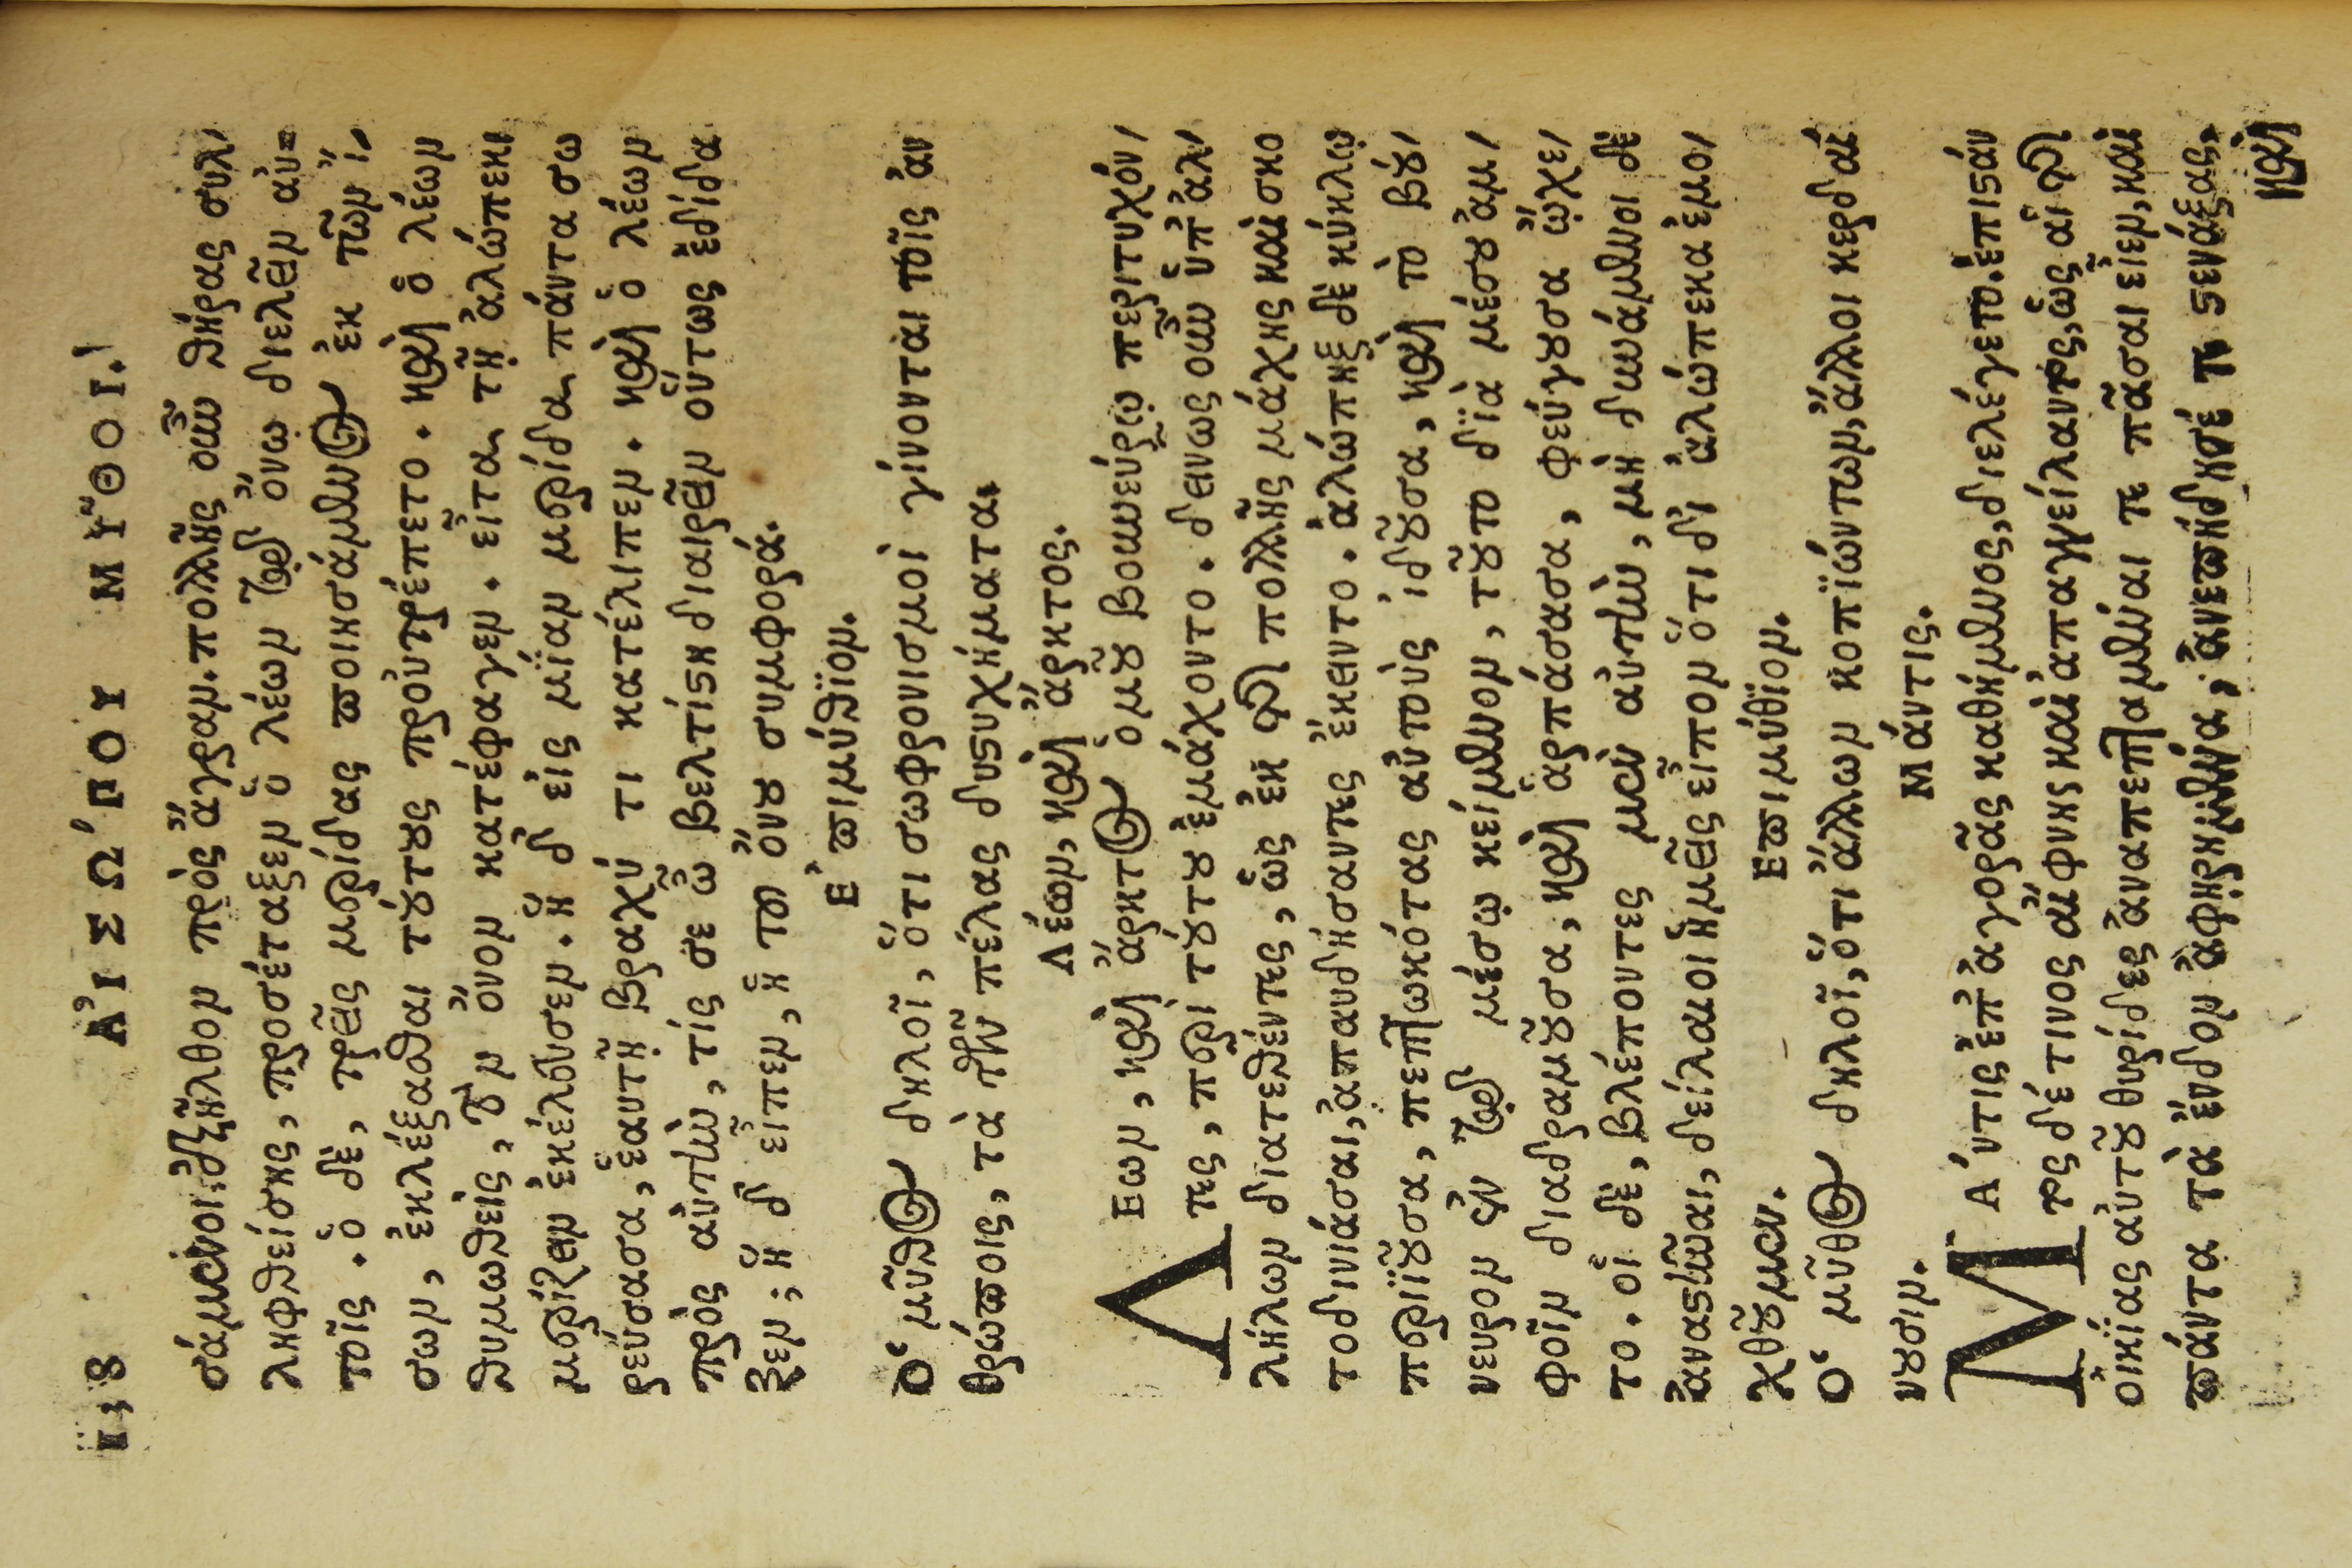 138 ΑἸΣΩ'ΠΟΥ ΜΥ͂ΘΟΙ.
σάμενοι, ἐξῆλθον πρὸς ἄγραν. πολλῆς οὖν θήρας συλ-
ληφθείσης, προσέταξεν ὁ λέων τῷ ὄνῳ διελεῖν αὐ-
τοῖς. ὁ δὲ, τρεῖς μερίδας ποιησάμενος ἐκ τῶν ἴ-
σων, ἐκλέξασθαι τούτους προὐτρέπετο. καὶ ὁ λέων
θυμωθεὶς, τὸν ὄνον κατέφαγεν. εἶτα τῇ ἀλώπεκι
μερίζειν ἐκέλευσεν. ἡ δ' εἰς μίαν μερίδα πάντα σω
ρεύσασα, ἑαυτῇ βραχύ τι κατέλιπεν. καὶ ὁ λέων
πρὸς αὐτὴν, τίς σε ὦ βελτίστη διαιρεῖν οὕτως ἐδίδα
ξεν; ἡ δ' εἶπεν, ἡ τοῦ ὄνου συμφορά.
Ἐπιμύθιον.
Ὁ μῦθος δηλοῖ, ὅτι σωφρονισμοὶ γίνονται τοῖς ἀν
θρώποις, τὰ τῶν πέλας δυστυχήματα.
Λέων, καὶ ἄρκτος.
ΛΕων, καὶ ἄρκτος ὁμοῦ βοωνεύρῳ περιτυχόν-
τες, περὶ τούτου ἐμάχοντο. δεινῶς οὖν ὑπ' ἀλ-
λήλων διατεθέντες, ὡς ἐκ τῆς πολλῆς μάχης καὶ σκο
τοδινιάσαι, ἀπαυδήσαντες ἔκειντο. ἀλώπηξ δὲ κύκλῳ
περιϊοῦσα, πεπτωκότας αὐτοὺς ἰδοῦσα, καὶ τὸ βού-
νευρον ἐν τῷ μέσῳ κείμενον, τοῦτο διὰ μέσου ἀμ-
φοῖν διαδραμοῦσα, καὶ ἁρπάσασα, φεύγουσα ᾤχε-
το. οἱ δὲ, βλέποντες μὲν αὐτὴν, μὴ δυνάμενοι δὲ
ἀναστῆναι, δείλαιοι ἡμεῖς εἶπον ὅτι δι' ἀλώπεκα ἐμο-
χθοῦμεν.
Επιμύθιον.
Ὁ μῦθος δηλοῖ, ὅτι ἄλλων κοπιώντων, ἄλλοι κερδαί
νουσιν.
Μάντις.
ΜΑ'ντις ἐπ' ἀγορᾶς καθήμενος, διελέγετο. ἐπιστάν
τος δέ τινος αἴφνης καὶ ἀπαγγείλαντος, ὡς αἱ τῆς
οἰκίας αὐτοῦ θυρίδες ἀναπεπταμέναι τε πᾶσαι εἶεν, καὶ
πάντα τὰ ἔνδον ἀφῃρημένα, ἀνεπήδησέ τε στενάξας.
καὶ